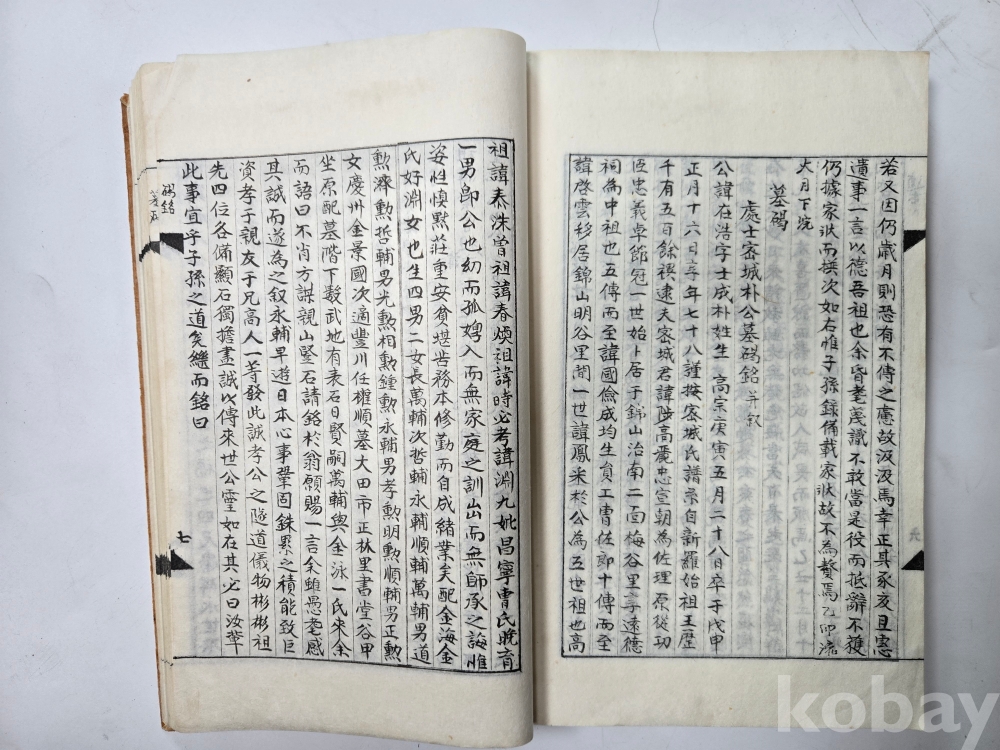 若又因仍歲月則恐有不傳之慮故汲汲焉幸正其豕亥且憲
遺事一言以德吾祖也余昏耄蔑識不敢當是役而抵辭不獲
仍據家狀而撰次如右惟子孫錄備載家狀故不為贅焉乙卯流
大月下浣
墓碣
處士密城朴公墓碣銘并叙
公諱在浩字士成朴姓生 高宗庚寅五月二十八日卒于戊甲
正月十六日享年七十八謹按密城氏譜系自新羅始祖王歷
千有五百餘禩逮夫密城君諱陟高麗忠宣朝為佐理原從功
臣忠義卓節冠一世始卜居于錦山治南二面梅谷里享遠德
祠為中祖也五傳而至諱國儉成均生員工曹佐郎十傳而至
諱啓雲移居錦山明谷里間一世諱鳳米於公為五世祖也高
六
祖諱泰洙曾祖諱春煥祖諱時必考諱淵九妣昌寧曺氏晚育
一男郎公也幼而孤娉入而無家庭之訓出而無師承之誨惟
姿性愼黙莊重安貧堪苦務本修勤而自成緒業矣配金海金
氏好淵女也生四男二女長萬輔次哲輔永輔順輔萬輔男道
勲濟勲哲輔男光勲相勲鍾勲永輔男孝勲明勲順輔男正勲
女慶州金景國次適豐川任權順墓大田市正林里書堂谷甲
坐原配墓階下數武地有表石日賢嗣萬輔與金泳一氏來余
而語曰不肖方謀親山竪石請銘於翁願賜一言余雖愚耄感
其誠而遂為之叙永輔早遊日本心事鞏固銖累之積能致巨
資孝于親友于兄高人一等發此誠孝公之隧道儀物彬彬祖
先四位各備顯石獨擔盡誠以傳來世公靈如在其必曰汝輩
此事宜乎子孫之道矣繼而銘曰
碣銘
七
kobay